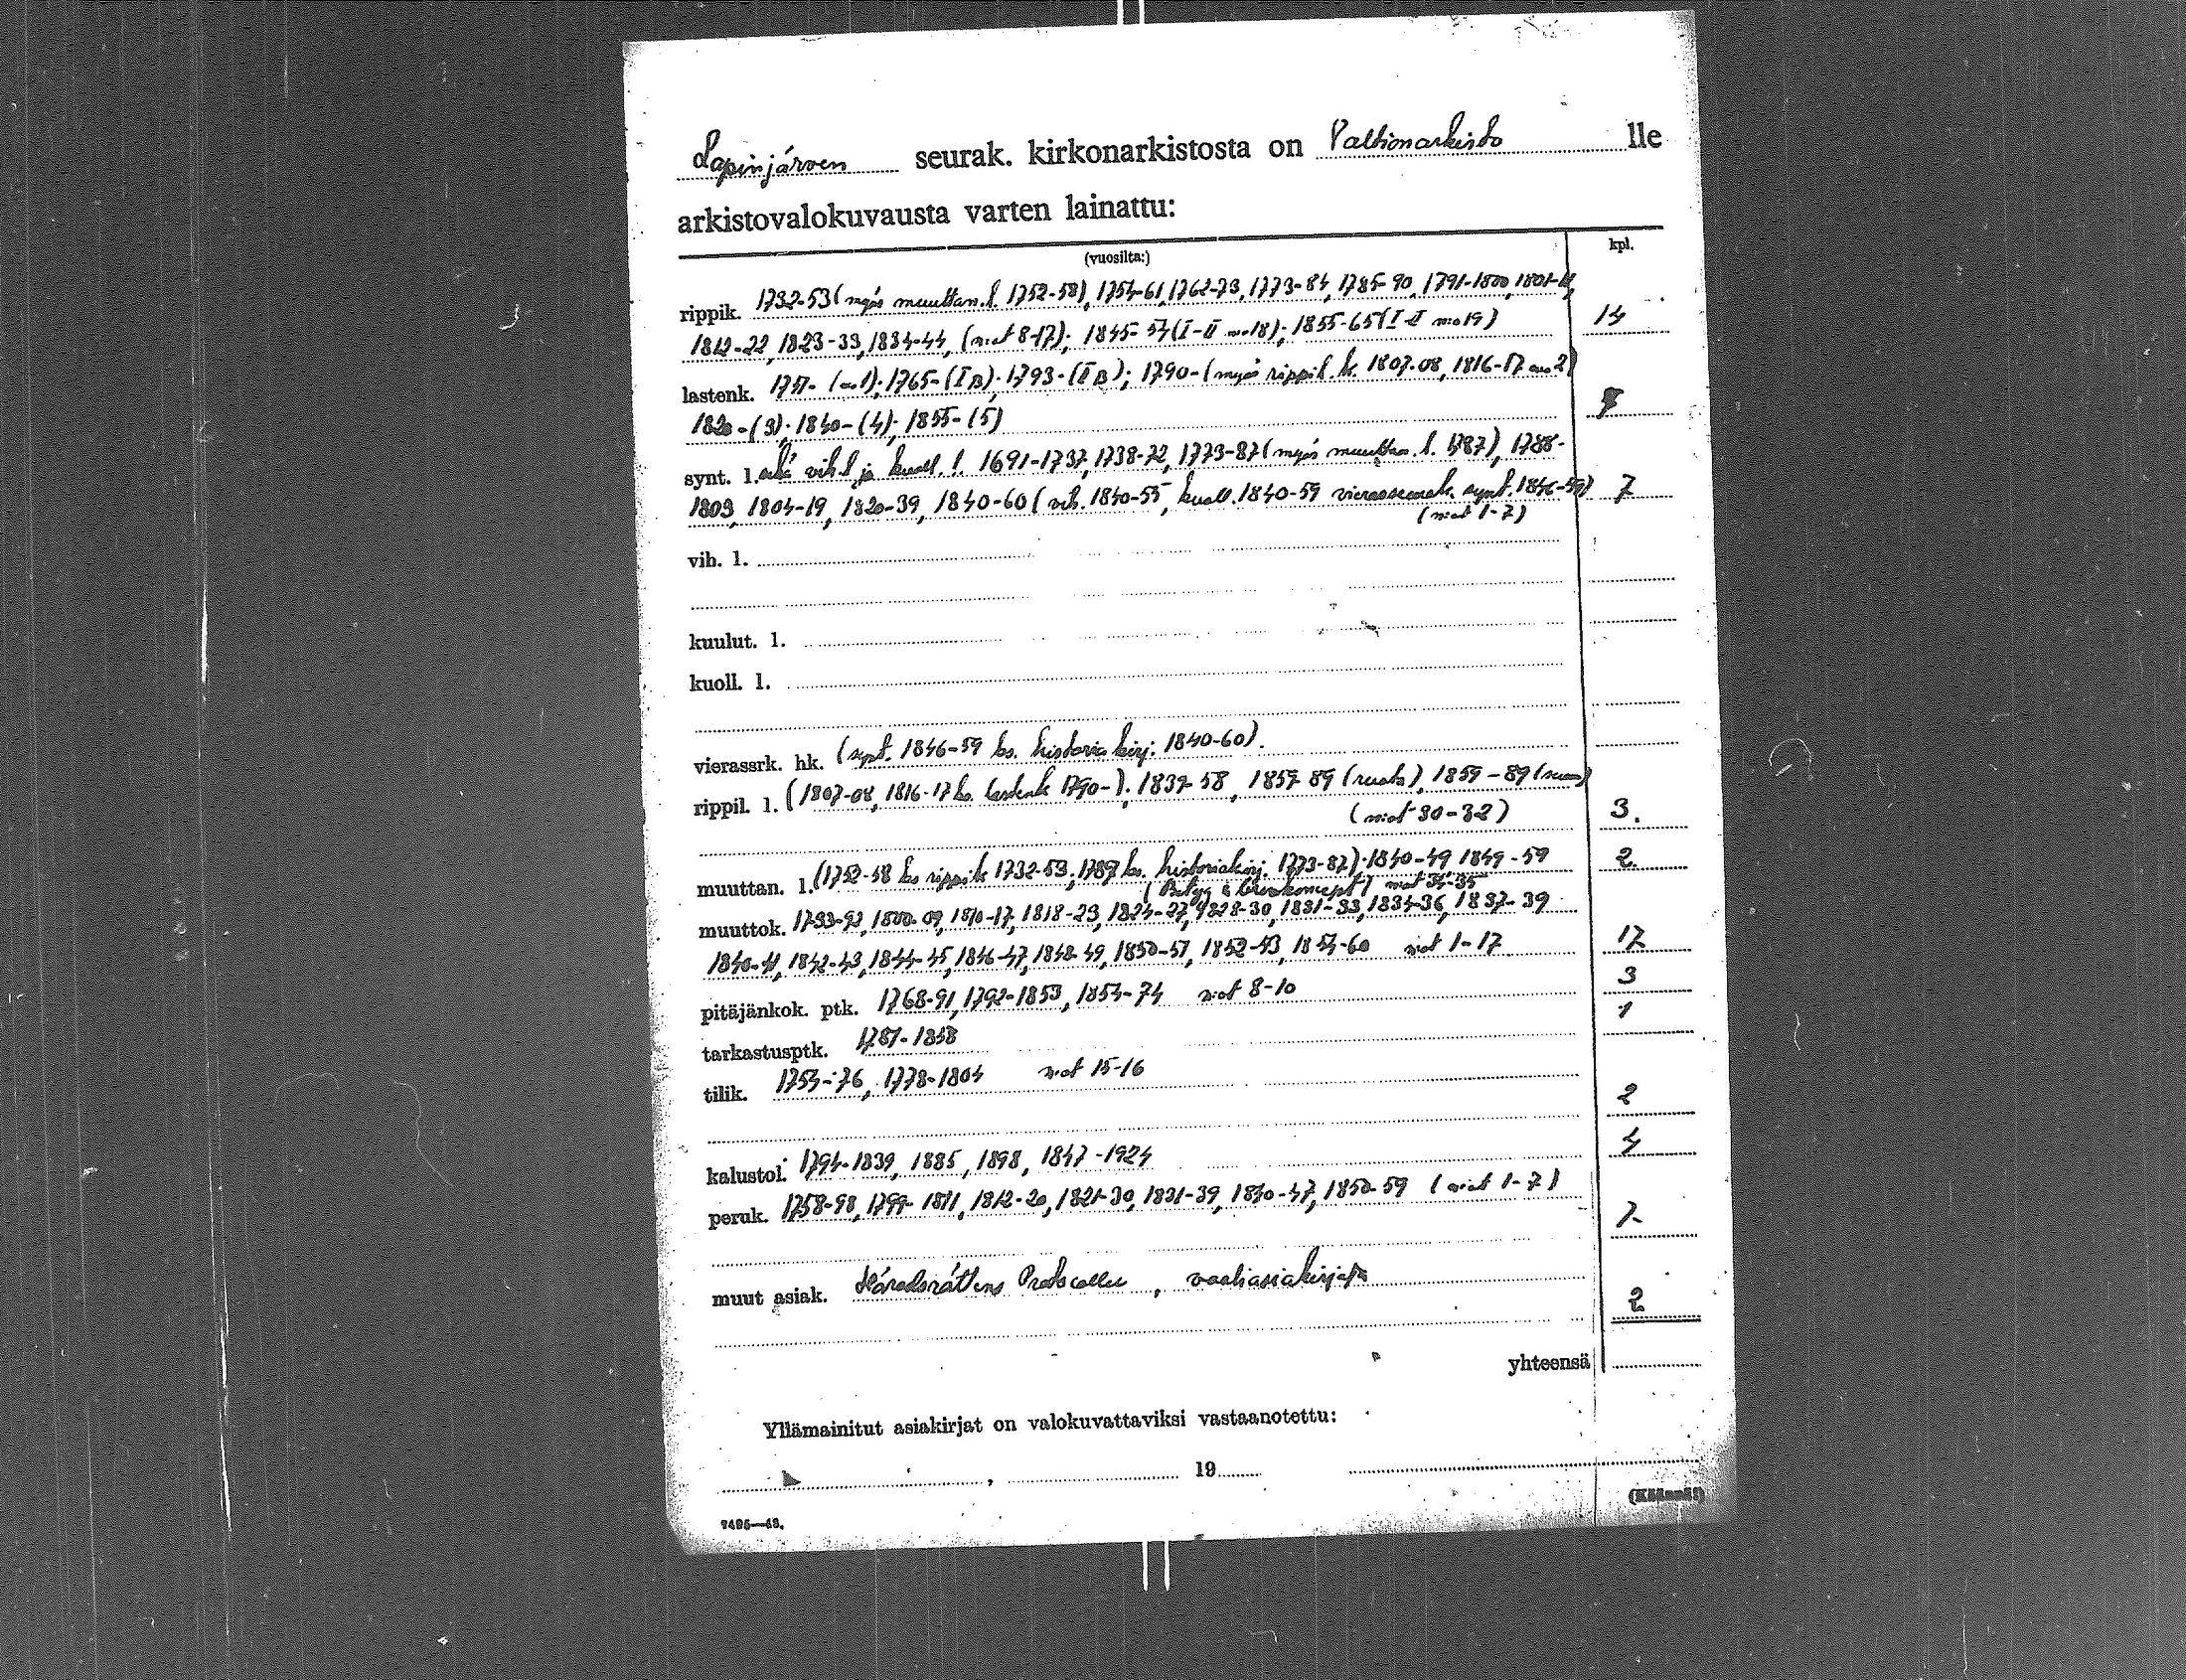 Lapinjärven seurak. kirkonarkistosta on Valtionarkisto lle
arkistovalokuvausta varten lainattu:
(vuosilta:) kpl.
rippik. 1732-53 (myös muuttan. l. 1752-58), 1754-61, 1762-73, 1773-84, 1785-90, 1791-1800, 1801-11,
1812-22, 1823-33, 1834-44, (n:ot 8-17); 1845-54 (I-II n:o 18); 1855-65 (I-II n:o 19) 14
lastenk. 1751- (n:o 1); 1765- (I B); 1793- (II B); 1790- (myös rippil. k. 1807-08, 1816-17 n:o 2)
1820- (3); 1840- (4); 1855- (5)
synt. l. sekä vih. l ja kuoll. l. 1691-1737, 1738-72, 1773-87 (myös muuttan. l. 1787), 1788-
1803, 1804-19, 1820-39, 1840-60 (vih. 1840-55, kuoll. 1840-59 vierasseurak. synt. 1846-59) 7
(n:ot 1-7)
vih. l.
kuulut. l.
kuoll. l.
vierassrk. hk. (synt. 1846-59 ks. historiakirj. 1840-60).
rippil. l. (1807-08, 1816-17 ks. lastenk 1790-); 1837-58, 1857-89 (ruots), 1859-89 (suom)
(n:ot 30-32) 3.
muuttan. l. (1752-58 ks rippik 1732-53; 1787 ks. historiakirj. 1773-87); 1840-49 1849-59 2.
n:ot 34-35
muuttok. 1733-92, 1800-09, 1810-17, 1818-23, 1824-27, 1828-30, 1831-33, 1834-36, 1837-39
1840-41, 1842-43, 1844-45, 1846-47, 1848-49, 1850-51, 1852-53, 1854-60 n:ot 1-17 17
pitäjänkok. ptk. 1768-91, 1792-1853, 1854-74 n:ot 8-10 3
tarkastusptk. 1781-1858 1
tilik. 1754-76, 1778-1804 n:ot 15-16
2
kalustol. 1794-1839, 1885, 1898, 1847-1924 4
peruk. 1758-98, 1799-1811, 1812-20, 1821-30, 1831-39, 1840-47, 1850-59 (n:ot 1-7)
7
muut asiak. Häradsrättens Protocoller, vaaliasiakirjoja
2
yhteensä
Yllämainitut asiakirjat on valokuvattaviksi vastaanotettu:
, 19
(Käännä!)
7495—48.